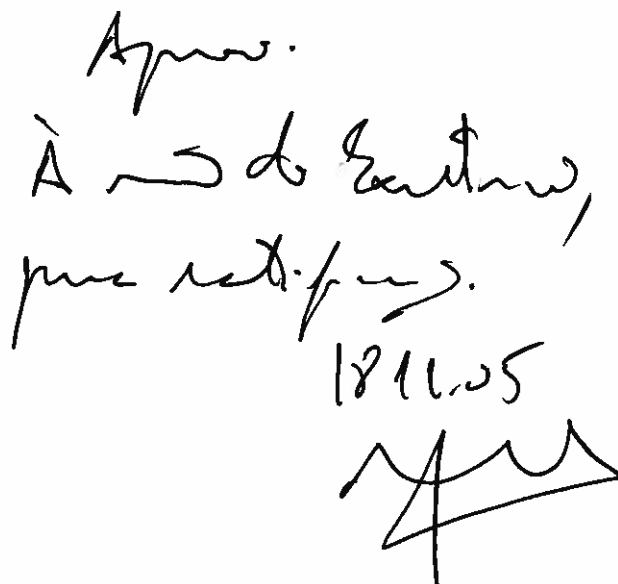 Aprovo.
À reunião do Executivo,
para ratificação.
18.11.05